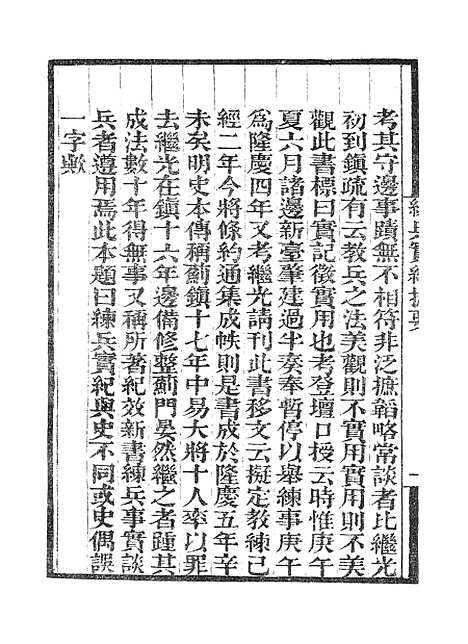 考其守邊事蹟無不相符非泛摭韜略常談者比繼光
初到鎮疏有云教兵之法美觀則不實用實用則不美
觀此書標曰實記徵實用也考登壇口授云時惟庚午
夏六月諸邊新臺肇建過半奏奉暫停以舉練事庚午
爲隆慶四年又考繼光請刊此書移文云擬定教練已
經二年今將條約通集成帙則是書成於隆慶五年辛
未矣明史本傳稱薊鎮十七年中易大將十人率以罪
去繼光在鎮十六年邊備修整薊門晏然繼之者踵其
成法數十年得無事又稱所著紀效新書練兵事實談
兵者遵用焉此本題曰練兵實紀與史不同或史偶誤
一字歟